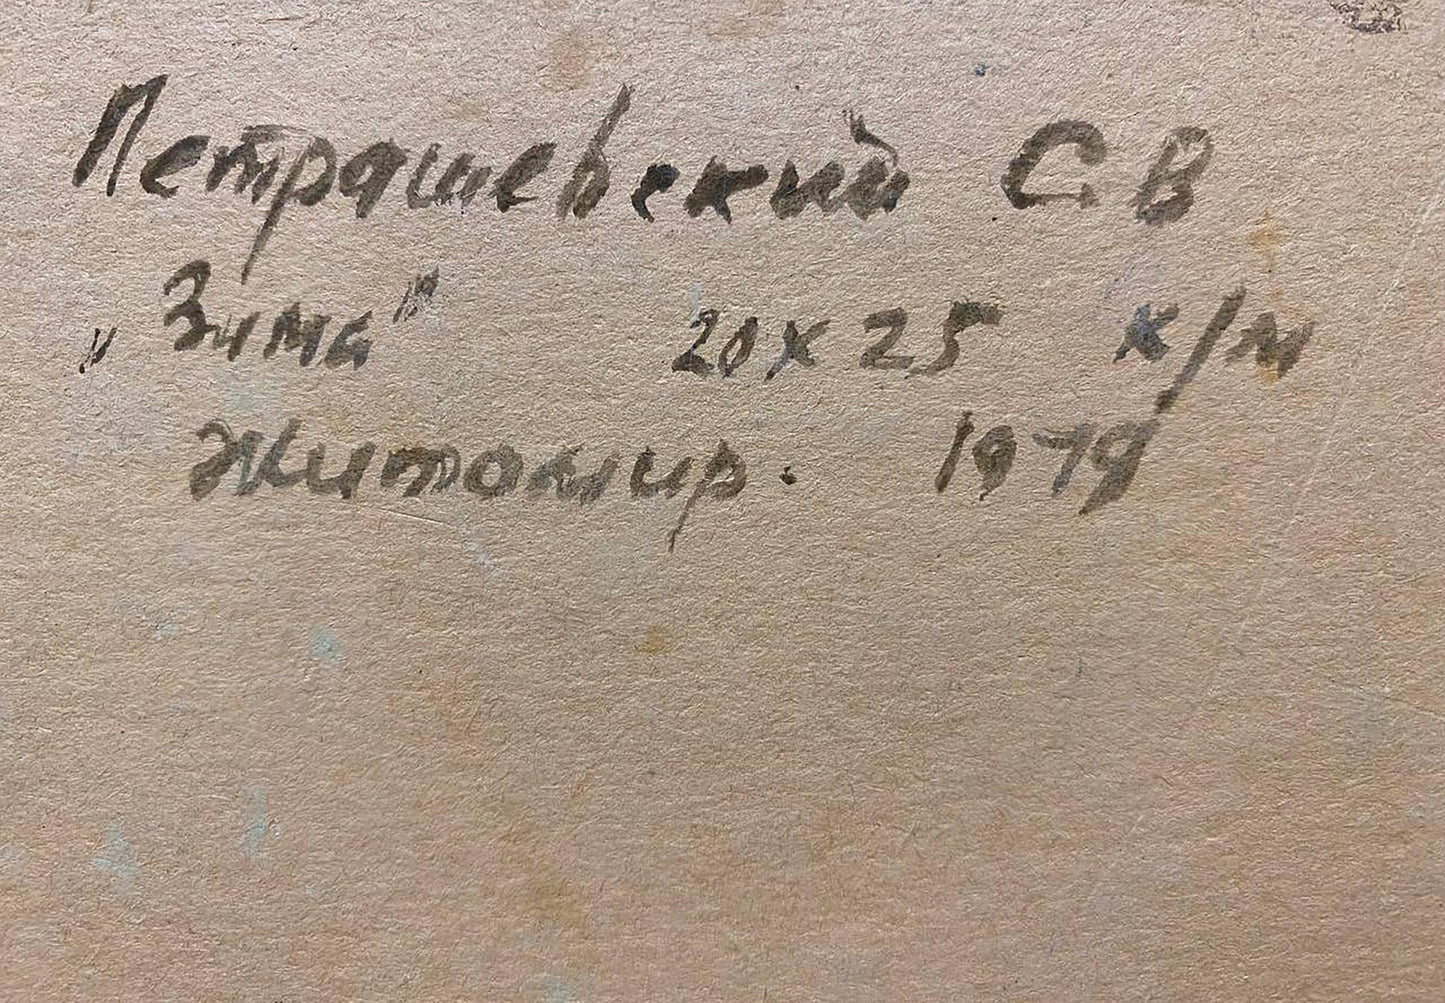 Петрашевский С В
„Зима" 20х25 к/м
Житомир. 1979